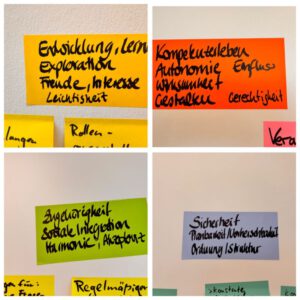 Entwicklung, Lern
Exploration
Freude, Interesse
Leichtigkeit
langen
Rollen-
Kompetenzerleben
Autonomie Einfluss
Wirksamkeit
Gestalten Gerechtigkeit
Vera
Zugehörigkeit
Soziale Integration
Harmonie, Akzeptanz
Regelmäßiger
Sicherheit
Planbarkeit / Vorhersehbarkeit
Ordnung / Struktur